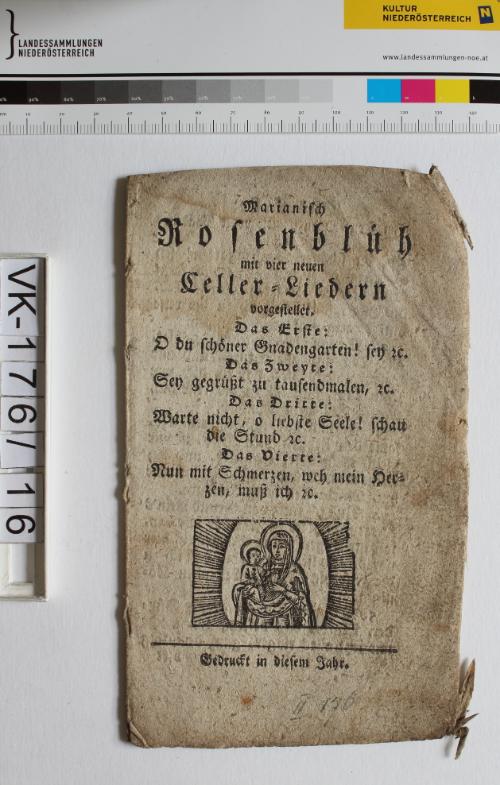 LANDESSAMMLUNGEN
NIEDERÖSTERREICH
KULTUR
NIEDERÖSTERREICH
N
www.landessammlungen-noe.at
VK-176/16
Marianisch
Rosenblüh
mit vier neuen
Celler-Liedern
vorgestellet.
Das Erste:
O du schöner Gnadengarten! sey ꝛc.
Das Zweyte:
Sey gegrüßt zu tausendmalen, ꝛc.
Das Dritte:
Warte nicht, o liebste Seele! schau
die Stund ꝛc.
Das Vierte:
Nun mit Schmerzen, weh mein Her-
zen, muß ich ꝛc.
Gedruckt in diesem Jahr.
II 176